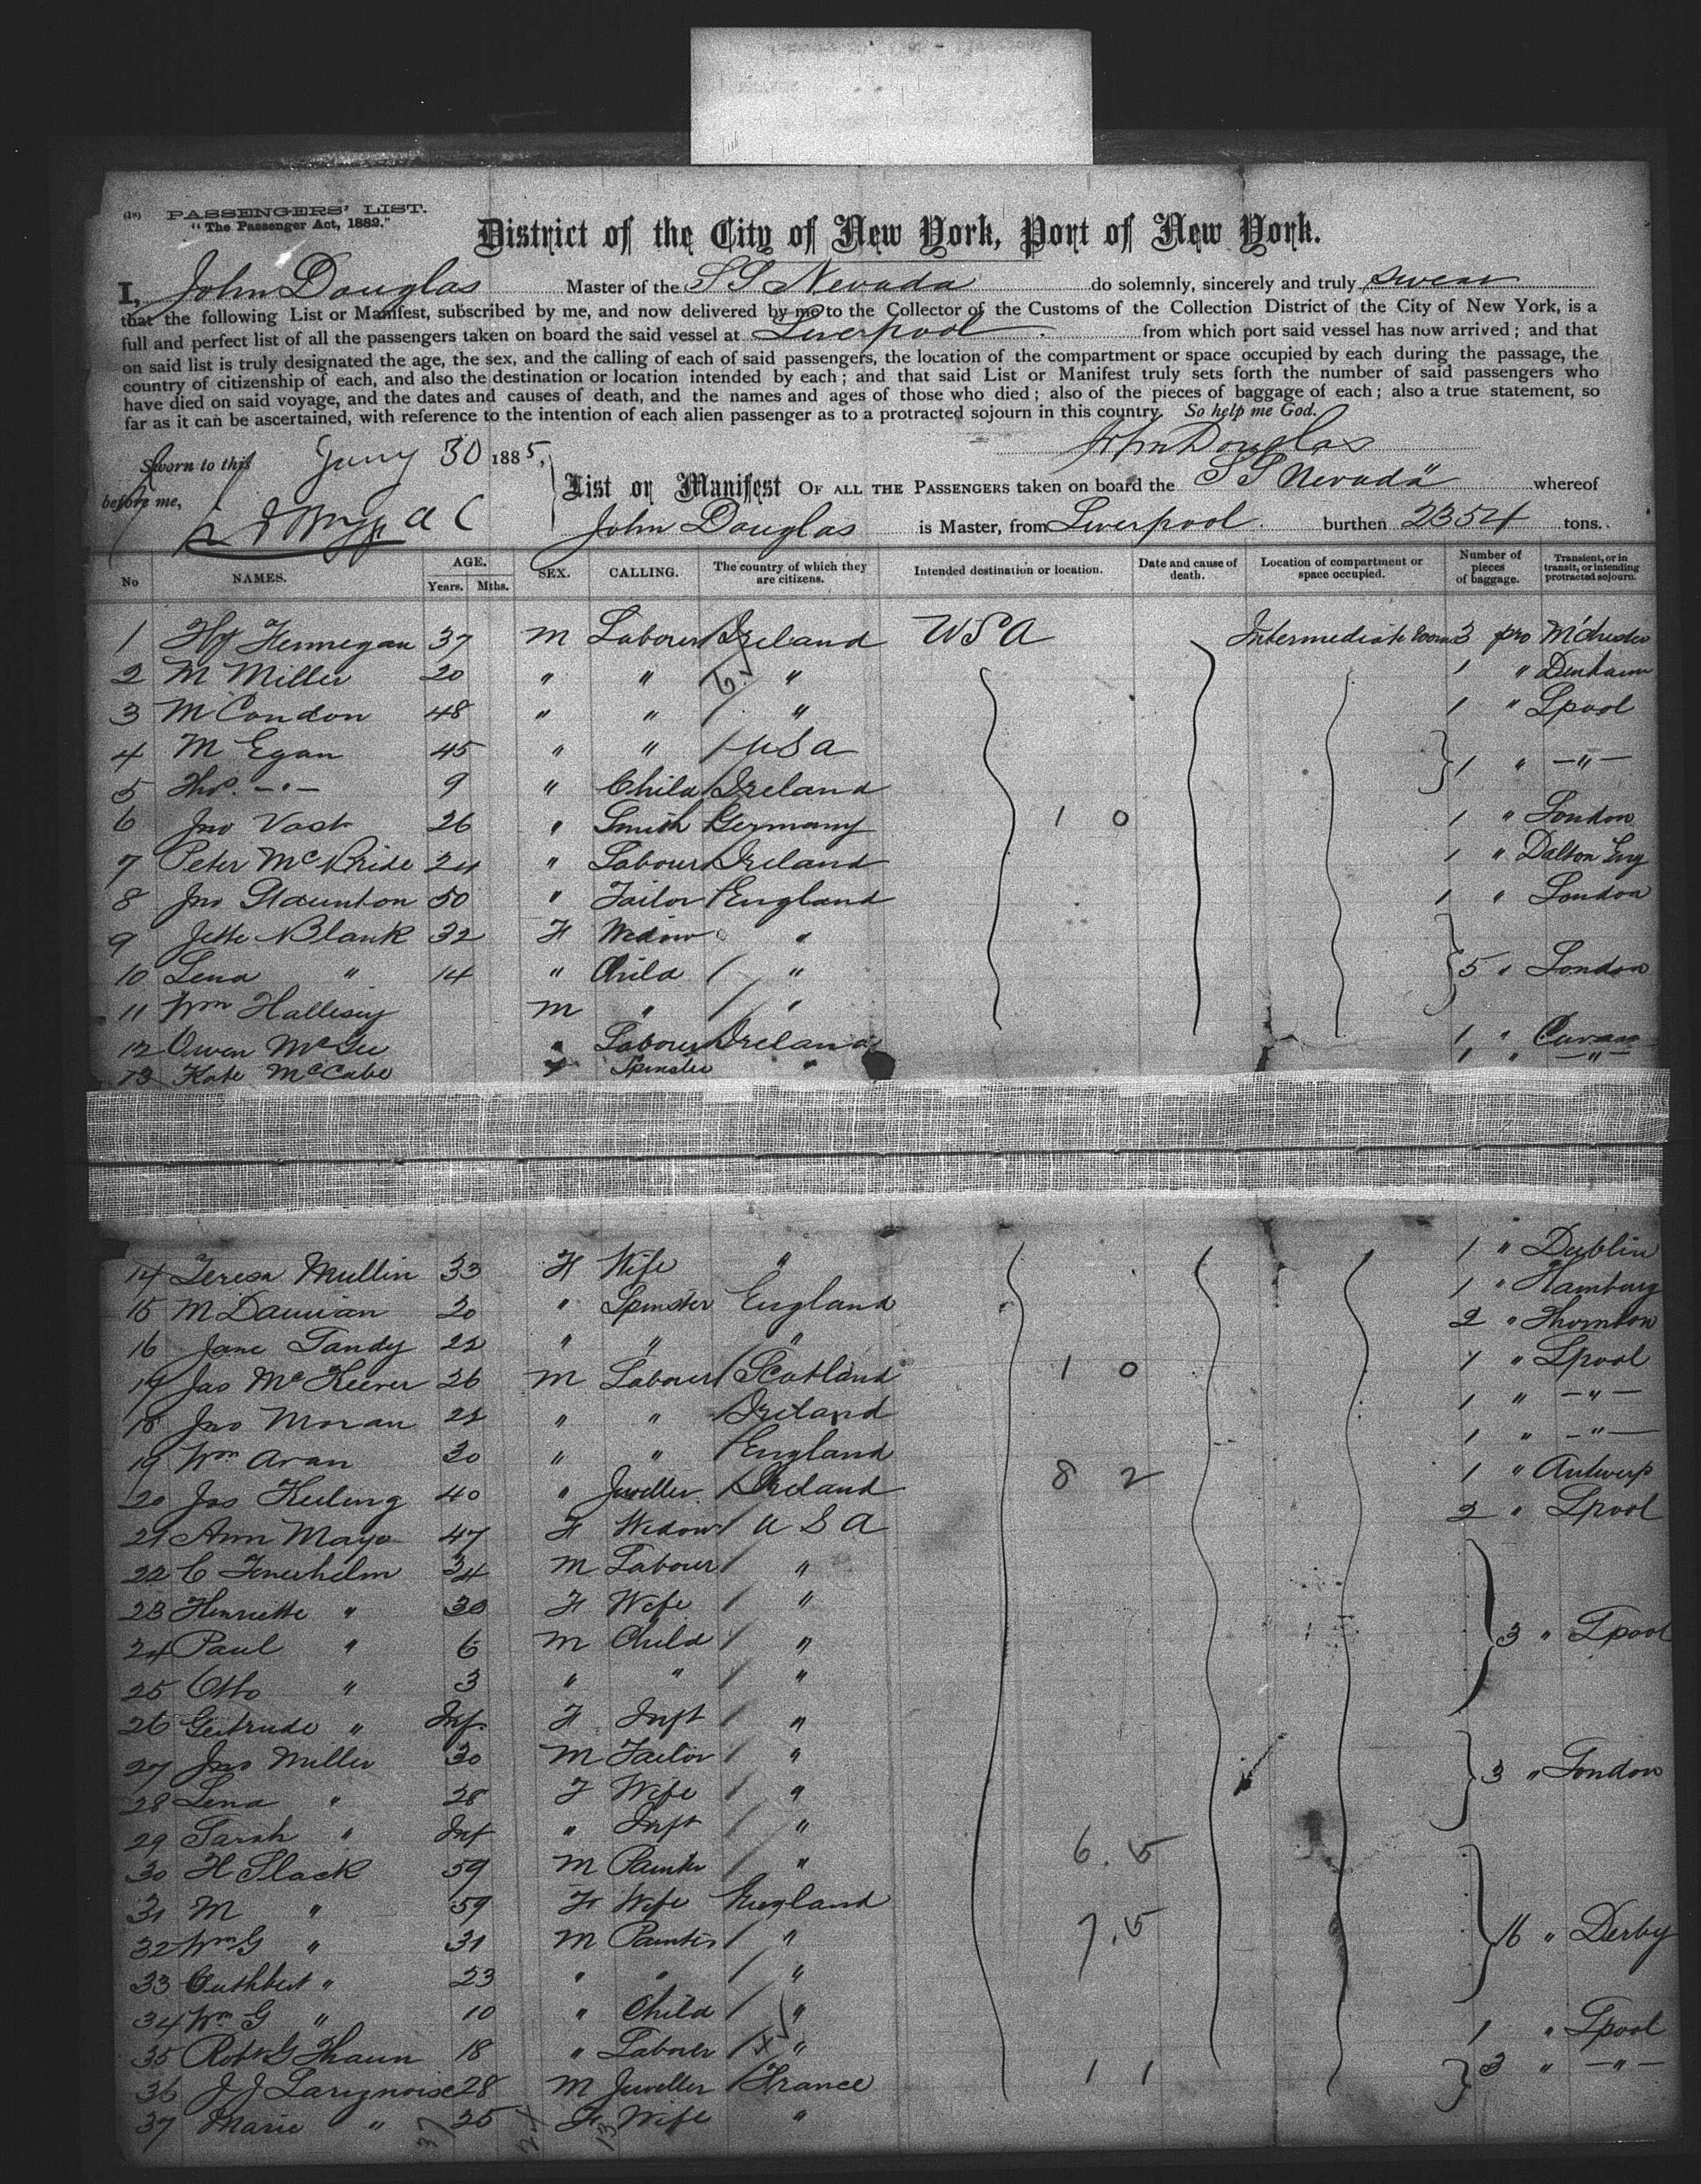 (18) PASSENGERS' LIST.
"The Passenger Act, 1882."
District of the City of New York, Port of New York.
I, John Douglas Master of the S S Nevada do solemnly, sincerely and truly swear
that the following List or Manifest, subscribed by me, and now delivered by me to the Collector of the Customs of the Collection District of the City of New York, is a
full and perfect list of all the passengers taken on board the said vessel at Liverpool from which port said vessel has now arrived; and that
on said list is truly designated the age, the sex, and the calling of each of said passengers, the location of the compartment or space occupied by each during the passage, the
country of citizenship of each, and also the destination or location intended by each; and that said List or Manifest truly sets forth the number of said passengers who
have died on said voyage, and the dates and causes of death, and the names and ages of those who died; also of the pieces of baggage of each; also a true statement, so
far as it can be ascertained, with reference to the intention of each alien passenger as to a protracted sojourn in this country. So help me God.
John Douglas
Sworn to this Jany 30 1885,
before me,
List or Manifest OF ALL THE PASSENGERS taken on board the S S Nevada whereof
John Douglas is Master, from Liverpool burthen 2354 tons.
No NAMES. AGE. Years. Mths. SEX. CALLING. The country of which they are citizens. Intended destination or location. Date and cause of death. Location of compartment or space occupied. Number of pieces of baggage. Transient, or in transit, or intending protracted sojourn.
1 Hennegan 37 M Labourer Ireland USA Intermediate Room 3 pro M'chester
2 M Miller 20 " " " 1 "
3 M Condon 48 " " " 1 " Lpool
4 M Egan 45 " " USA 1 " -"-
5 Thos. -"- 9 " Child Ireland
6 Jno Vost 26 " Smith Germany 1 0 1 " London
7 Peter McBride 24 " Labourer Ireland 1 " Dalton Eng
8 Jno Staunton 50 " Tailor England 1 " London
9 Jette Blank 32 F Widow "
10 Lena " 14 " Child " 5 " London
11 Wm Hallisey M " "
12 Owen McGee " Labourer Ireland 1 "
13 Kate McCabe Spinster " 1 " -"-
14 Teresa Mullin 33 F Wife " 1 " Dublin
15 M 20 " Spinster England 1 " Hamburg
16 Jane Tandy 22 " " " 2 " Thornton
17 Jas McKeever 26 M Labourer Scotland 1 0 1 " Lpool
18 Jno Moran 22 " " Ireland 1 " -"-
19 Wm Aran 30 " " England 1 " -"-
20 Jos Keiling 40 " Jweller Ireland 8 2 1 " Antwerp
21 Ann Mayo 47 F Widow U S A 2 " Lpool
22 C 34 M Labourer "
23 Henriette " 30 F Wife "
24 Paul " 6 M Child " 3 " Lpool
25 Otto " 3 " " "
26 Gertrude " Inf. F Inft "
27 Jno Miller 30 M Tailor " 3 " London
28 Lena " 28 F Wife "
29 Sarah " Inf " Inft "
30 H Slack 59 M Painter " 6.5
31 M " 59 F Wife England
32 Wm G " 31 M Painter " 7.5 16 " Derby
33 Cuthbert " 23 " " "
34 Wm G " 10 " Child "
35 Robt G Thaun 18 " Labourer " 1 " Lpool
36 J J Larignoise 28 M Jweller France 1 1 3 " -"-
37 Marie " 25 F Wife "
37 24 13